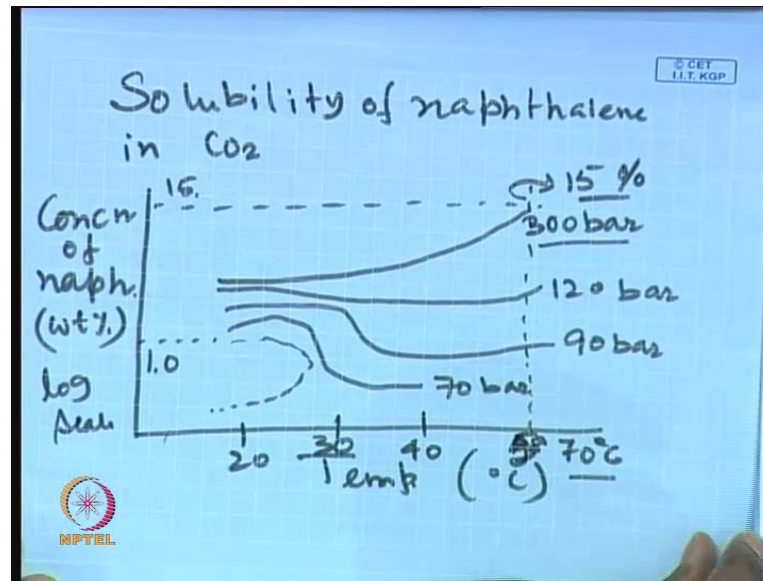 © CET
I.I.T. KGP
Solubility of naphthalene
in CO2
Concn
of
naph.
(wt%)
log
scale
15.
1.0
15 %
300 bar
120 bar
90 bar
70 bar
20 32 40 70°C
Temp (°C)
NPTEL